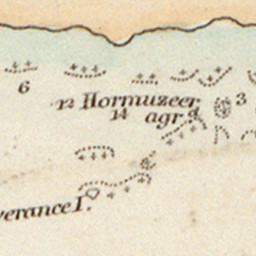 6
12 Hormuzeer 3
14 agrd
verance I.